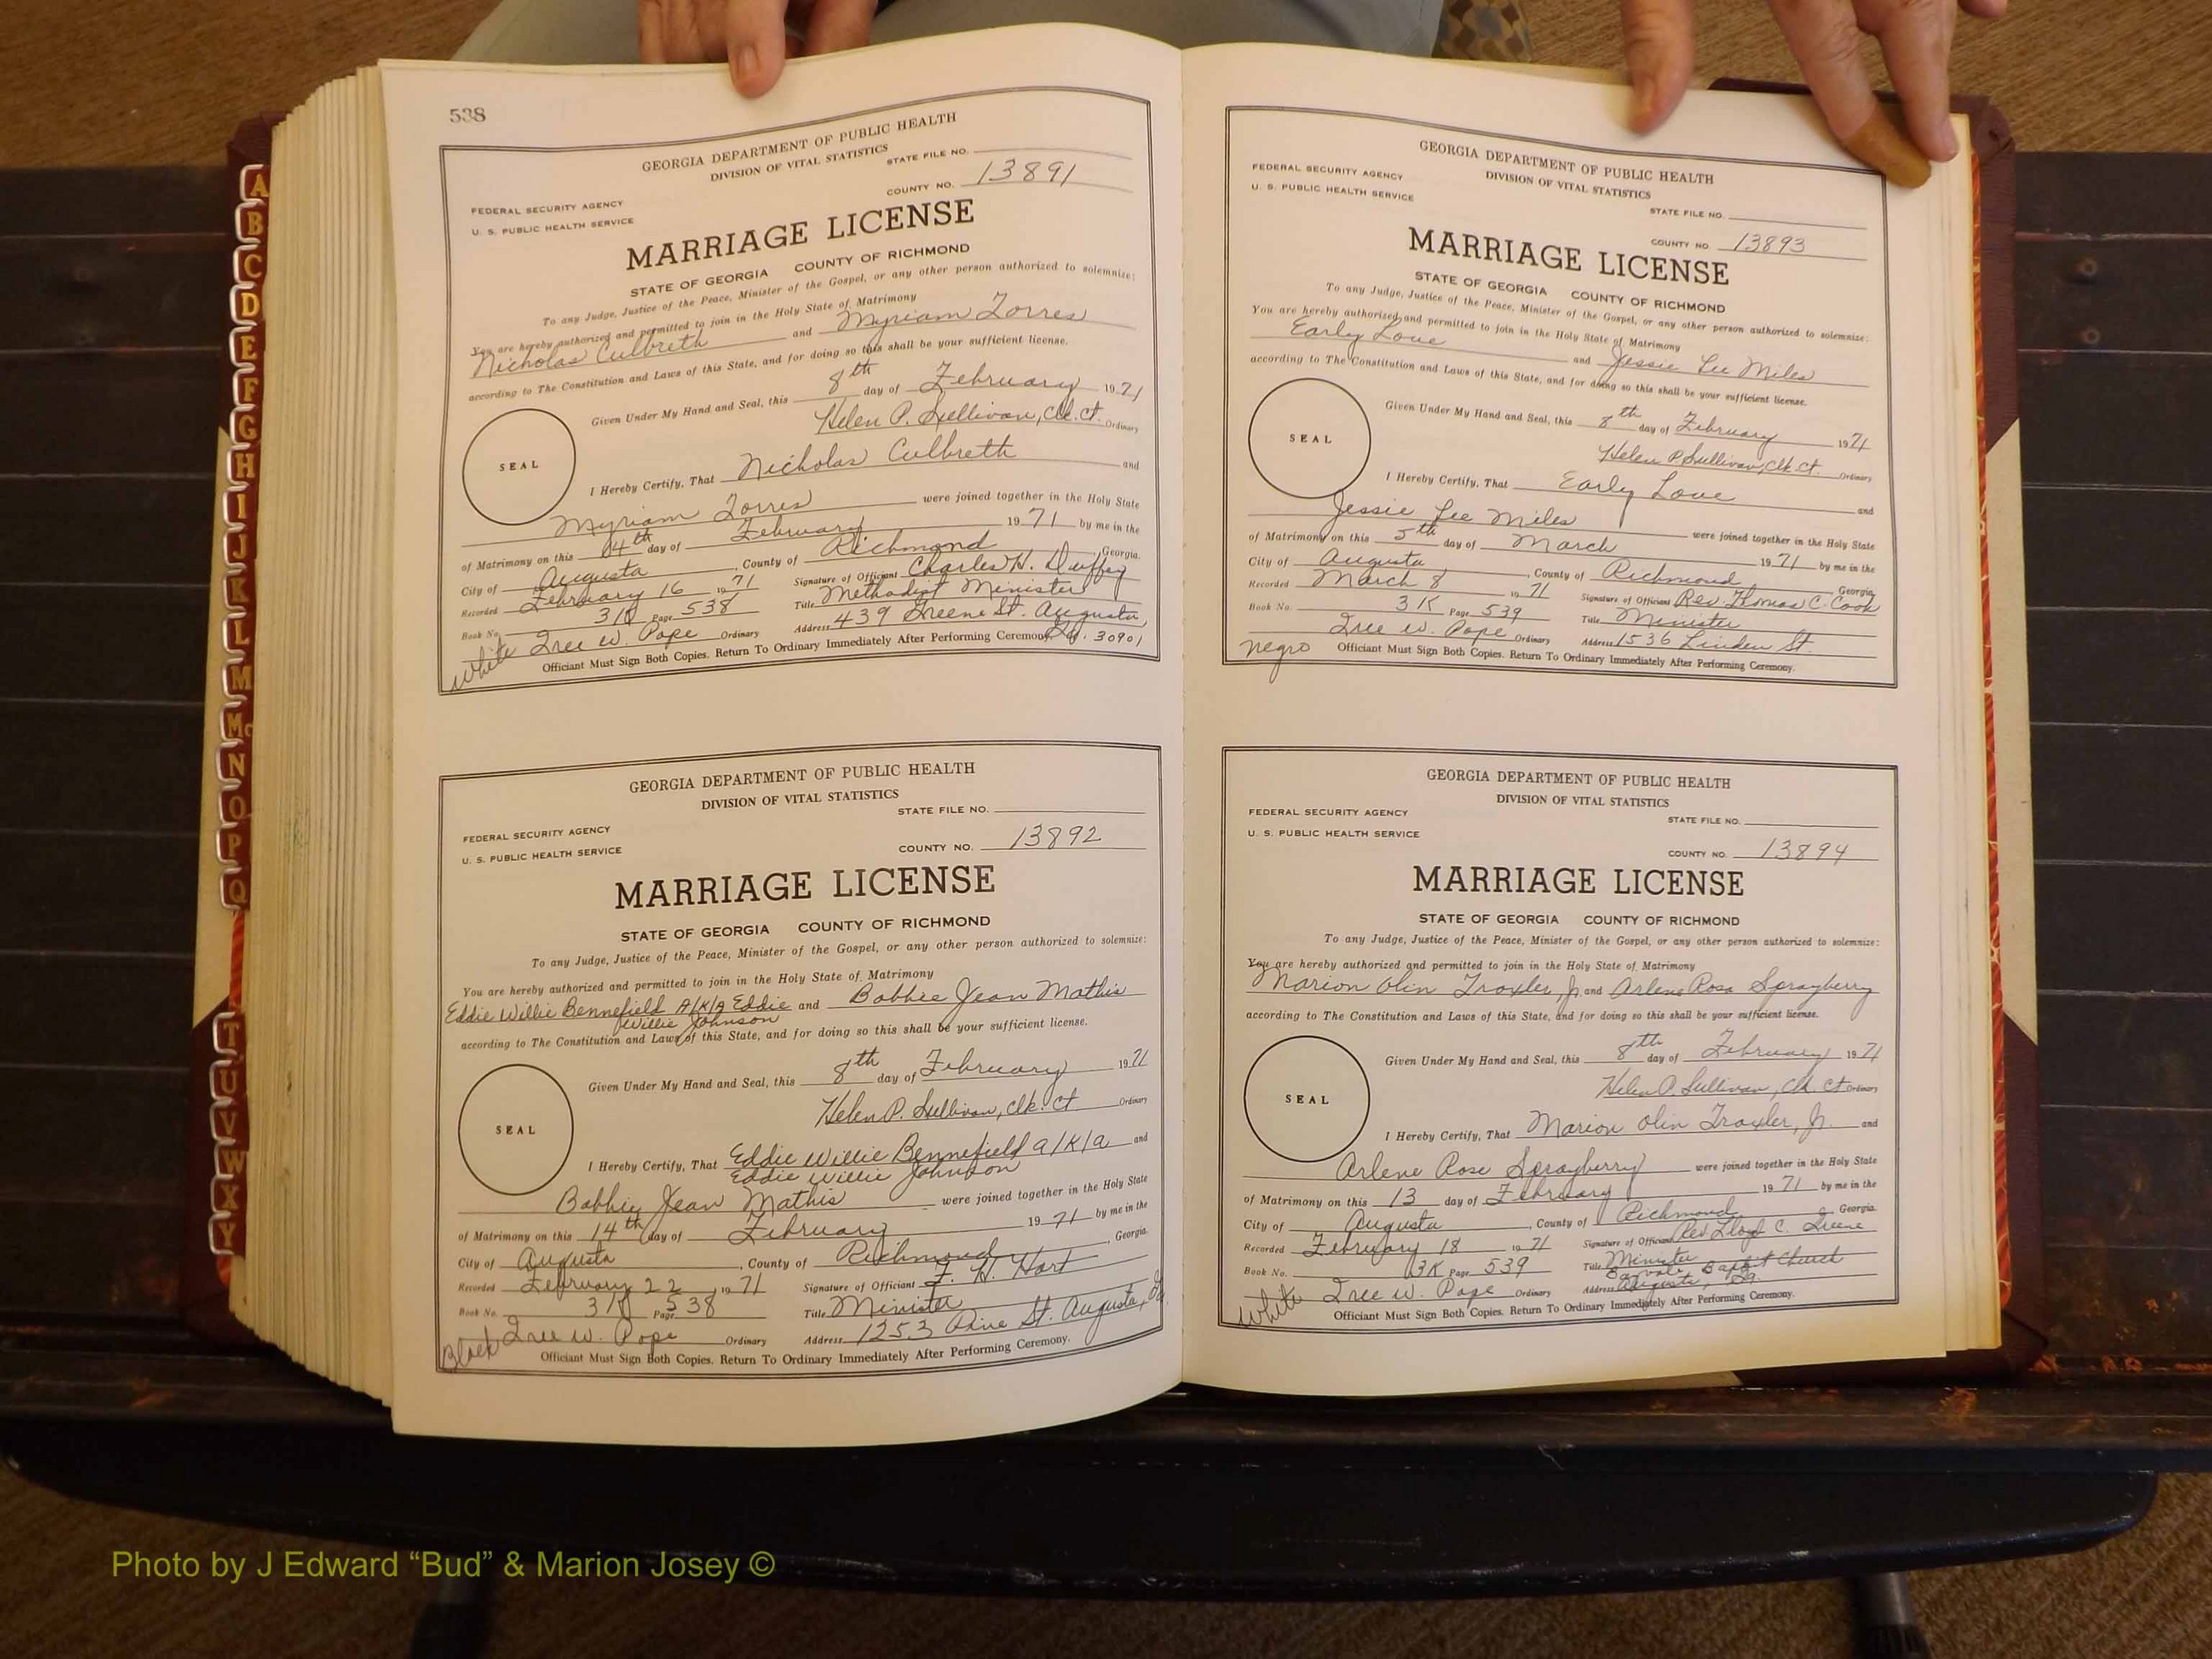 538
GEORGIA DEPARTMENT OF PUBLIC HEALTH
DIVISION OF VITAL STATISTICS
STATE FILE NO.
COUNTY NO. 13891
FEDERAL SECURITY AGENCY
U. S. PUBLIC HEALTH SERVICE
MARRIAGE LICENSE
STATE OF GEORGIA COUNTY OF RICHMOND
To any Judge, Justice of the Peace, Minister of the Gospel, or any other person authorized to solemnize:
You are hereby authorized and permitted to join in the Holy State of Matrimony
Nicholas Culbreth and Myriam Torres
according to The Constitution and Laws of this State, and for doing so this shall be your sufficient license.
Given Under My Hand and Seal, this 8th day of February 1971
Helen P. Sullivan, Clk. Ct. Ordinary
SEAL
I Hereby Certify, That Nicholas Culbreth and
Myriam Torres were joined together in the Holy State
of Matrimony on this 14th day of February 1971 by me in the
City of Augusta, County of Richmond, Georgia.
Recorded February 16 1971 Signature of Officiant Charles H. Duffey
Book No. 3K Page 538 Title Methodist Minister
Tree W. Pope Ordinary Address 439 Greene St. Augusta,
Ga. 30901
white Officiant Must Sign Both Copies. Return To Ordinary Immediately After Performing Ceremony.
GEORGIA DEPARTMENT OF PUBLIC HEALTH
DIVISION OF VITAL STATISTICS
STATE FILE NO.
FEDERAL SECURITY AGENCY
U. S. PUBLIC HEALTH SERVICE
COUNTY NO. 13892
MARRIAGE LICENSE
STATE OF GEORGIA COUNTY OF RICHMOND
To any Judge, Justice of the Peace, Minister of the Gospel, or any other person authorized to solemnize:
You are hereby authorized and permitted to join in the Holy State of Matrimony
Eddie Willie Bennefield A/K/A Eddie and Bobbie Jean Mathis
Willie Johnson
according to The Constitution and Laws of this State, and for doing so this shall be your sufficient license.
Given Under My Hand and Seal, this 8th day of February 1971
Helen P. Sullivan, Clk. Ct Ordinary
SEAL
I Hereby Certify, That Eddie Willie Bennefield a/k/a and
Eddie Willie Johnson
Bobbie Jean Mathis were joined together in the Holy State
of Matrimony on this 14th day of February 1971 by me in the
City of Augusta, County of Richmond, Georgia.
Recorded February 22, 1971 Signature of Officiant F. H. Hart
Book No. 3K Page 538 Title Minister
Tree W. Pope Ordinary Address 1253 Pine St. Augusta, Ga.
Black Officiant Must Sign Both Copies. Return To Ordinary Immediately After Performing Ceremony.
GEORGIA DEPARTMENT OF PUBLIC HEALTH
DIVISION OF VITAL STATISTICS
FEDERAL SECURITY AGENCY
U. S. PUBLIC HEALTH SERVICE
STATE FILE NO.
COUNTY NO. 13893
MARRIAGE LICENSE
STATE OF GEORGIA COUNTY OF RICHMOND
To any Judge, Justice of the Peace, Minister of the Gospel, or any other person authorized to solemnize:
You are hereby authorized and permitted to join in the Holy State of Matrimony
Early Love and Jessie Lee Miles
according to The Constitution and Laws of this State, and for doing so this shall be your sufficient license.
Given Under My Hand and Seal, this 8th day of February 1971
Helen P. Sullivan, Clk. Ct. Ordinary
SEAL
I Hereby Certify, That Early Love and
Jessie Lee Miles were joined together in the Holy State
of Matrimony on this 5th day of March 1971 by me in the
City of Augusta, County of Richmond, Georgia.
Recorded March 8 1971 Signature of Officiant Rev. Thomas C. Cook
Book No. 3K Page 539 Title Minister
Tree W. Pope Ordinary Address 1536 Linden St.
negro Officiant Must Sign Both Copies. Return To Ordinary Immediately After Performing Ceremony.
GEORGIA DEPARTMENT OF PUBLIC HEALTH
DIVISION OF VITAL STATISTICS
FEDERAL SECURITY AGENCY
STATE FILE NO.
U. S. PUBLIC HEALTH SERVICE
COUNTY NO. 13894
MARRIAGE LICENSE
STATE OF GEORGIA COUNTY OF RICHMOND
To any Judge, Justice of the Peace, Minister of the Gospel, or any other person authorized to solemnize:
You are hereby authorized and permitted to join in the Holy State of Matrimony
Marion Olin Troxler Jr and Arlene Rosa Sprayberry
according to The Constitution and Laws of this State, and for doing so this shall be your sufficient license.
Given Under My Hand and Seal, this 8th day of February 1971
Helen P. Sullivan, Clk. Ct Ordinary
SEAL
I Hereby Certify, That Marion Olin Troxler, Jr. and
Arlene Rose Sprayberry were joined together in the Holy State
of Matrimony on this 13 day of February 1971 by me in the
City of Augusta, County of Richmond, Georgia.
Recorded February 18 1971 Signature of Officiant Rev Lloyd C. Greene
Book No. 3K Page 539 Title Minister
Baptist Church
Tree W. Pope Ordinary Address Augusta, Ga.
white Officiant Must Sign Both Copies. Return To Ordinary Immediately After Performing Ceremony.
A
B
C
D
E
F
G
H
I
J
K
L
M
Mc
N
O
P
Q
T
U
V
W
X
Y
Photo by J Edward “Bud” & Marion Josey ©